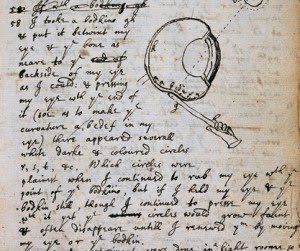 58 I tooke a bodkine gh
& put it betwixt my
eye & ye bone as
neare to ye
backside of my eye
as I could: & pressing
my eye wth ye end of
it (soe as to make ye
curvature a, bcdef in my
eye) there appeared severall
white darke & coloured circles
r, s, t, &c. Which circles were
plainest when I continued to rub my eye wth ye
point of ye bodkine, but if I held my eye & ye
bodkin still, though I continued to presse my eye
wth it yet ye circles would grow faint
& often disappeare untill I renewed ym by moving
my eye or ye bodkin.
were done in a light roome